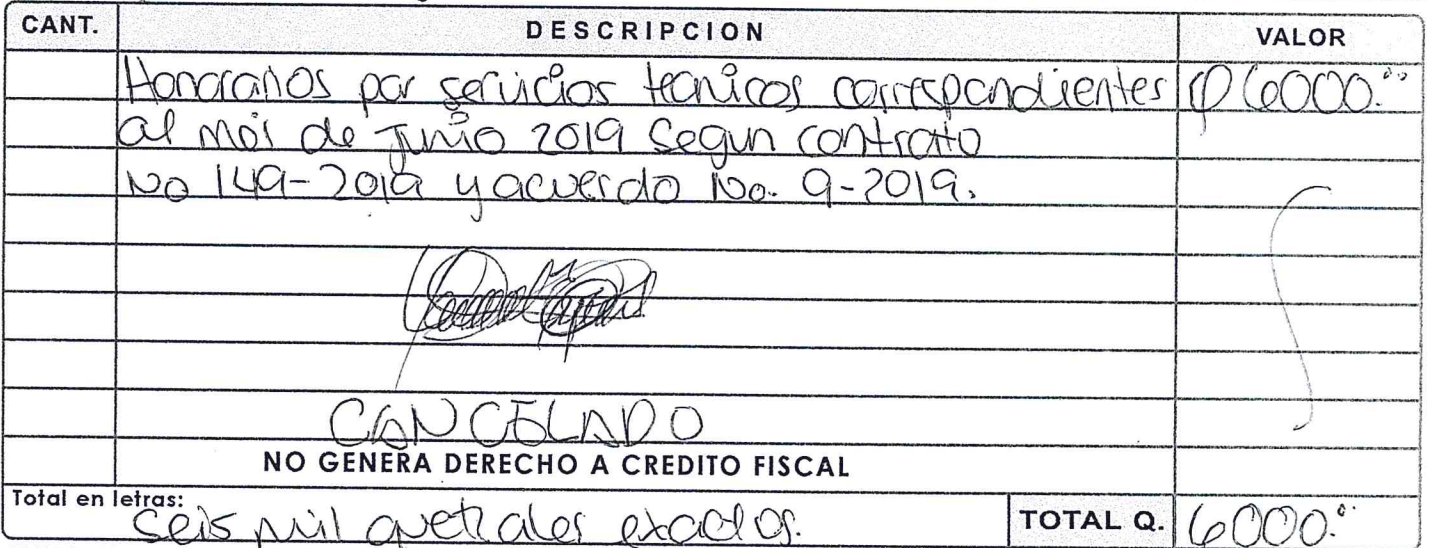 CANT. DESCRIPCION VALOR
Honorarios por servicios tecnicos correspondientes Q6000.00
al mes de Junio 2019 Segun contrato
No 149-2019 y acuerdo No. 9-2019.
CANCELADO
NO GENERA DERECHO A CREDITO FISCAL
Total en letras: Seis mil quetzales exactos. TOTAL Q. 6000.00